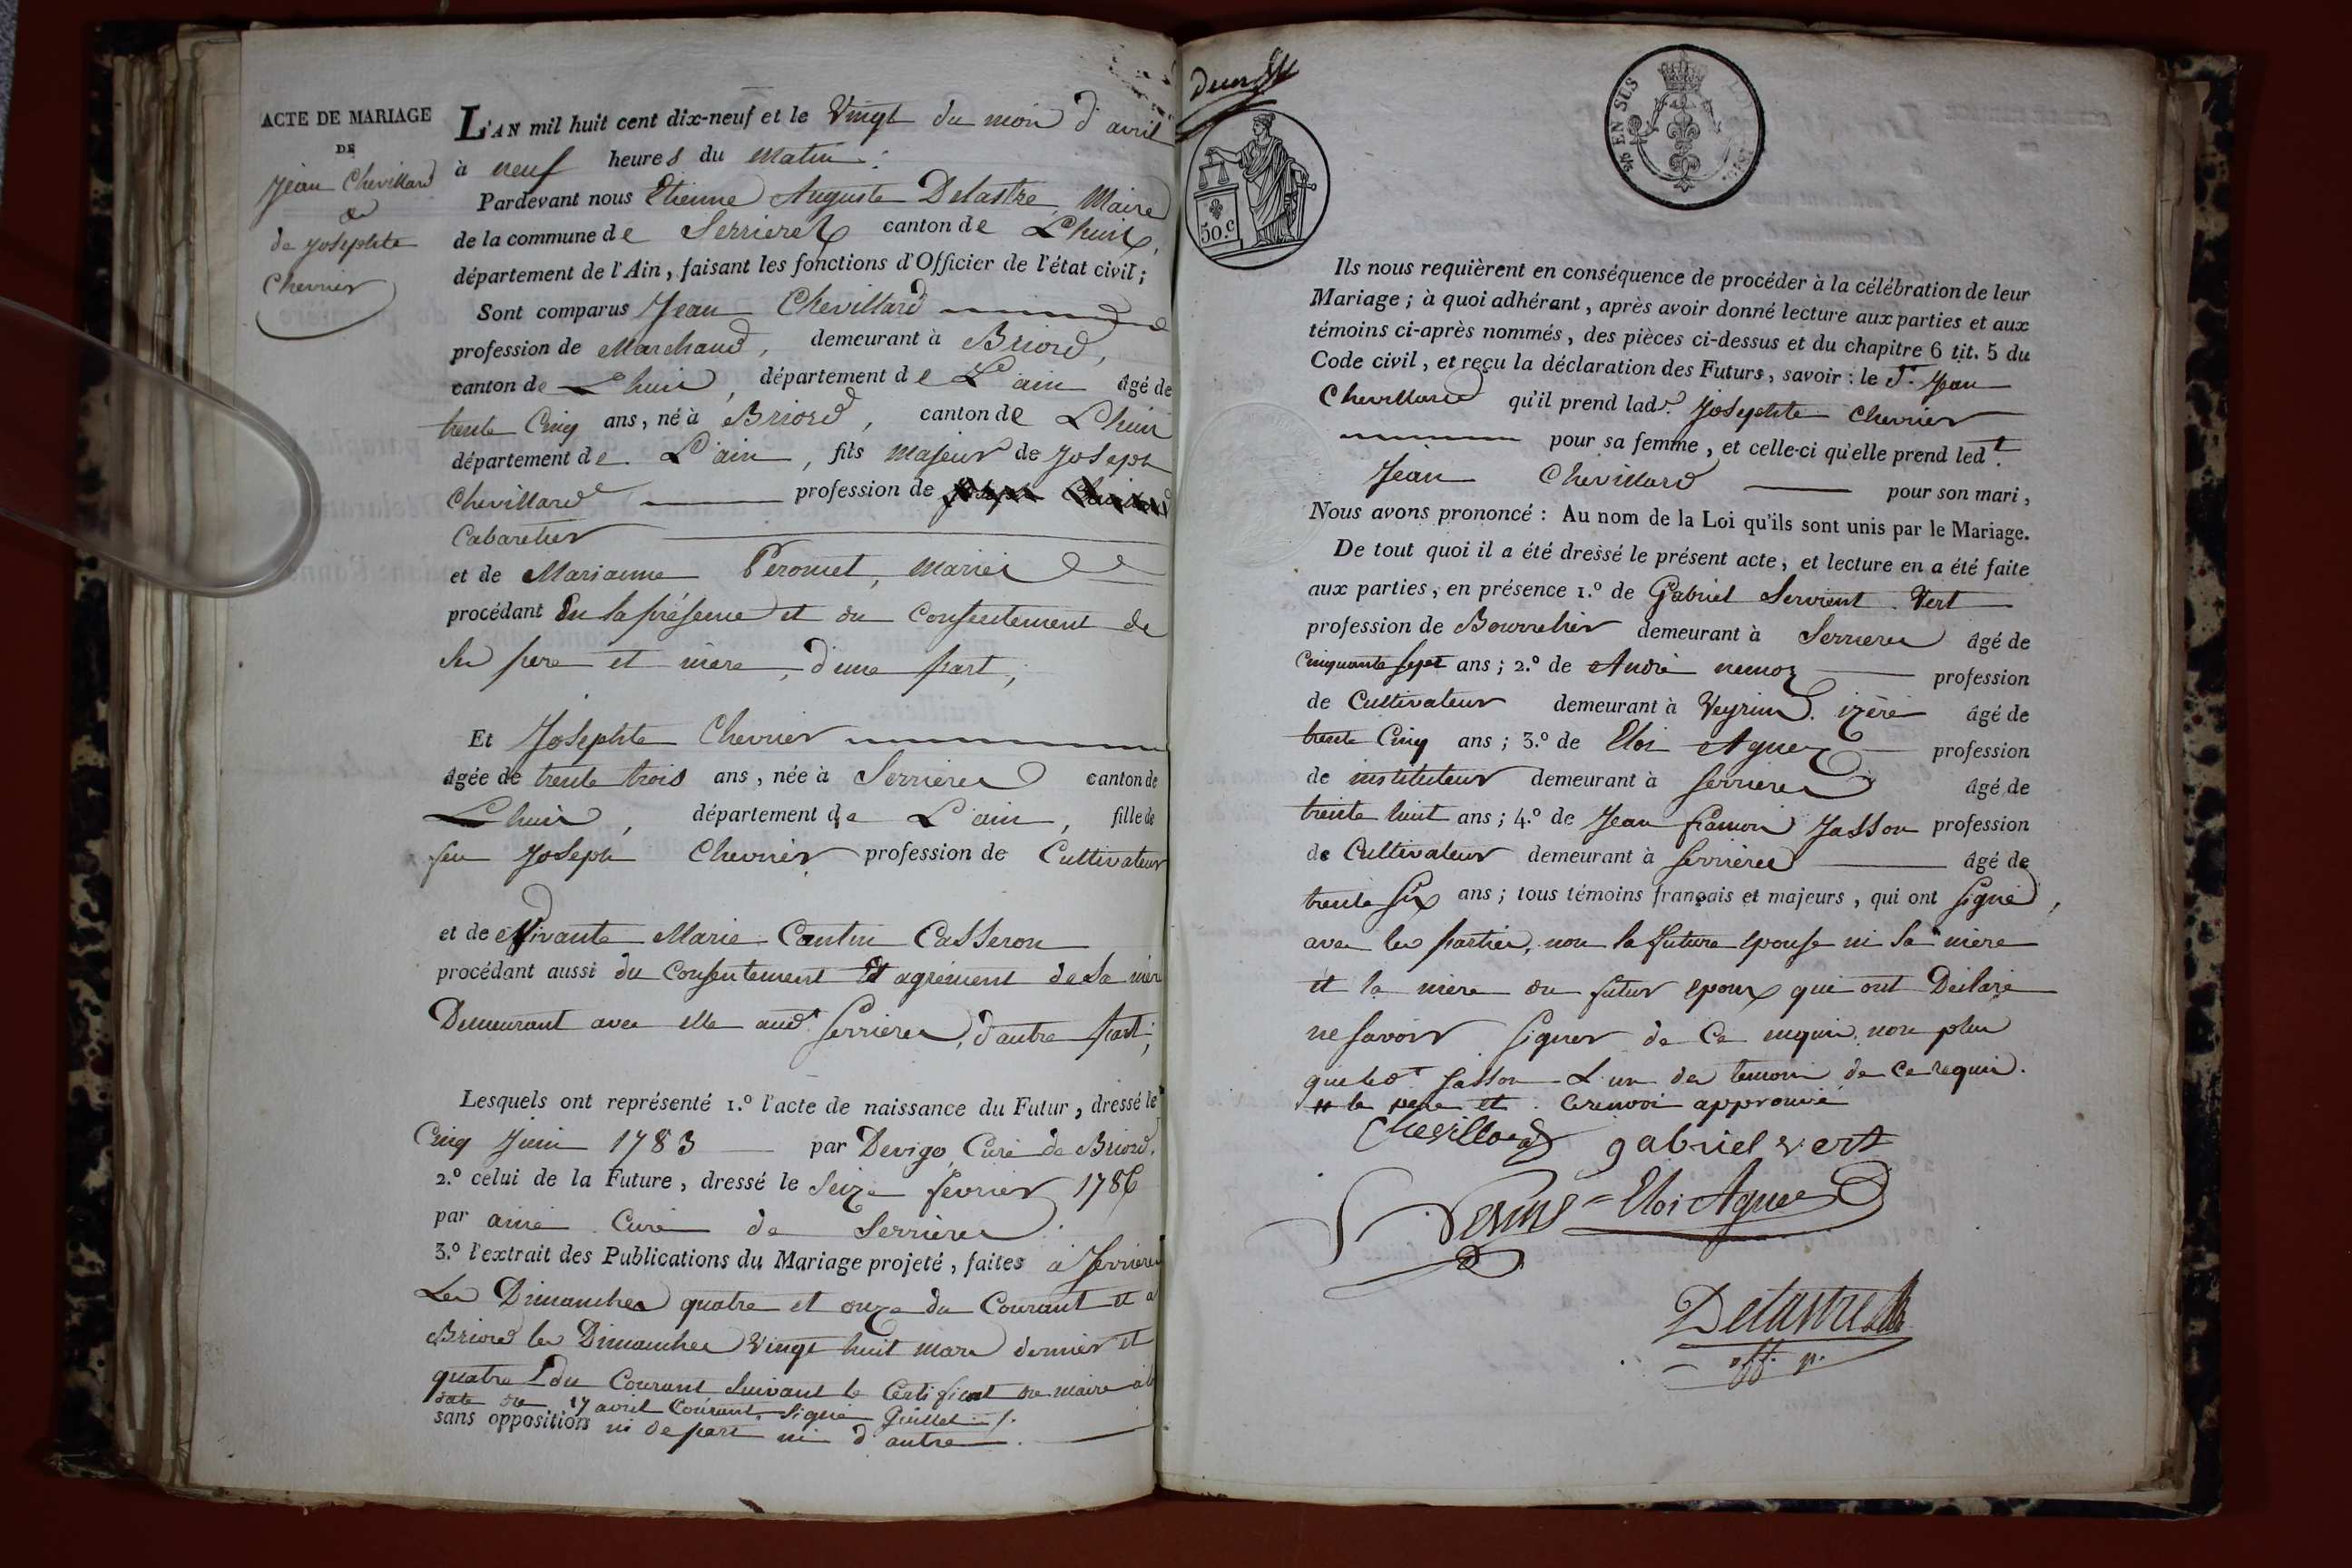 ACTE DE MARIAGE
DE
Jean Chevillard
&
de Josephte
Chevrier
L'AN mil huit cent dix-neuf et le Vingt du mois d'avril
à neuf heures du matin.
Pardevant nous Etienne Auguste Delastre, Maire
de la commune de Serrieres canton de Lhuis,
département de l'Ain, faisant les fonctions d'Officier de l'état civil;
Sont comparus Jean Chevillard
profession de Marchand, demeurant à Briord,
canton de Lhuis, département de L'ain âgé de
trente Cinq ans, né à Briord, canton de Lhuis
département de L'ain, fils majeur de Joseph
Chevillard profession de
Cabaretier
et de Marianne Peronnet, mariés
procédant En la présence et du Consentement de
ses pere et mère, d'une part,
Et Josephte Chevrier
âgée de trente trois ans, née à Serrieres canton de
Lhuis, département de L'ain, fille de
feu Joseph Chevrier profession de Cultivateur
et de vivante Marie Cantin Casseron
procédant aussi du Consentement Et agrément de sa mère
Demeurant avec elle aud.t Serrieres, d'autre part;
Lesquels ont représenté 1.º l'acte de naissance du Futur, dressé le
Cinq Juin 1783 par Devigo Curé de Briord.
2.º celui de la Future, dressé le Seize fevrier 1786
par aimé Curé de Serrieres.
3.º l'extrait des Publications du Mariage projeté, faites à Serrieres
Les Dimanches quatre et onze du Courant et a
Briord les Dimanches Vingt huit mars dernier et
quatre du Courant suivant le Certificat du maire
date du 17 avril Courant, Signé Guillet
sans opposition ni de part ni d'autre.
EN SUS
50.c
Ils nous requièrent en conséquence de procéder à la célébration de leur
Mariage; à quoi adhérant, après avoir donné lecture aux parties et aux
témoins ci-après nommés, des pièces ci-dessus et du chapitre 6 tit. 5 du
Code civil, et reçu la déclaration des Futurs, savoir: le S.r Jean
Chevillard qu'il prend lad.e Josephte Chevrier
pour sa femme, et celle-ci qu'elle prend led.t
Jean Chevillard pour son mari,
Nous avons prononcé: Au nom de la Loi qu'ils sont unis par le Mariage.
De tout quoi il a été dressé le présent acte, et lecture en a été faite
aux parties, en présence 1.º de Gabriel Servient Vert
profession de Bourrelier demeurant à Serrieres âgé de
Cinquante sept ans; 2.º de André nemoz profession
de Cultivateur demeurant à Veyrins. izère âgé de
trente Cinq ans; 3.º de Eloi Aguez profession
de instituteur demeurant à Serrieres âgé de
trente huit ans; 4.º de Jean Jasson profession
de Cultivateur demeurant à Serrieres âgé de
trente six ans; tous témoins français et majeurs, qui ont signé,
avec les parties, non la future epouse ni Sa mere
et la mere du futur epoux qui ont Déclaré
ne Savoir Signer de Ce requis, non plus
que led.t Jasson L'un des temoins de ce requis.
# le pere et. Ce renvoi approuvé
Chevillard gabriel vert
Eloi Aguez
Delastre
off. p.